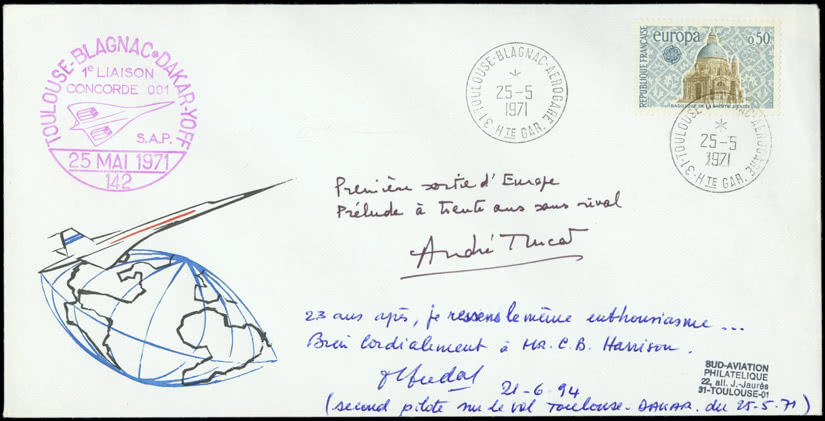 TOULOUSE-BLAGNAC*DAKAR-YOFF
1e LIAISON
CONCORDE 001
S.A.P.
25 MAI 1971
142
31-TOULOUSE-BLAGNAC-AEROGARE
*
25-5
1971
HTE GAR.
RÉPUBLIQUE FRANÇAISE
europa
0,50
31-TOULOUSE-BLAGNAC-AEROGARE
*
25-5
1971
HTE GAR.
Première sortie d'Europe
Prélude à trente ans sans rival
André Turcat
23 ans après, je ressens le même enthousiasme ...
Bien cordialement à MR. C.B. Harrison.
21-6-94
(second pilote sur le vol Toulouse-DAKAR du 25-5-71)
SUD-AVIATION
PHILATELIQUE
22, all. J.-Jaurès
31-TOULOUSE-01